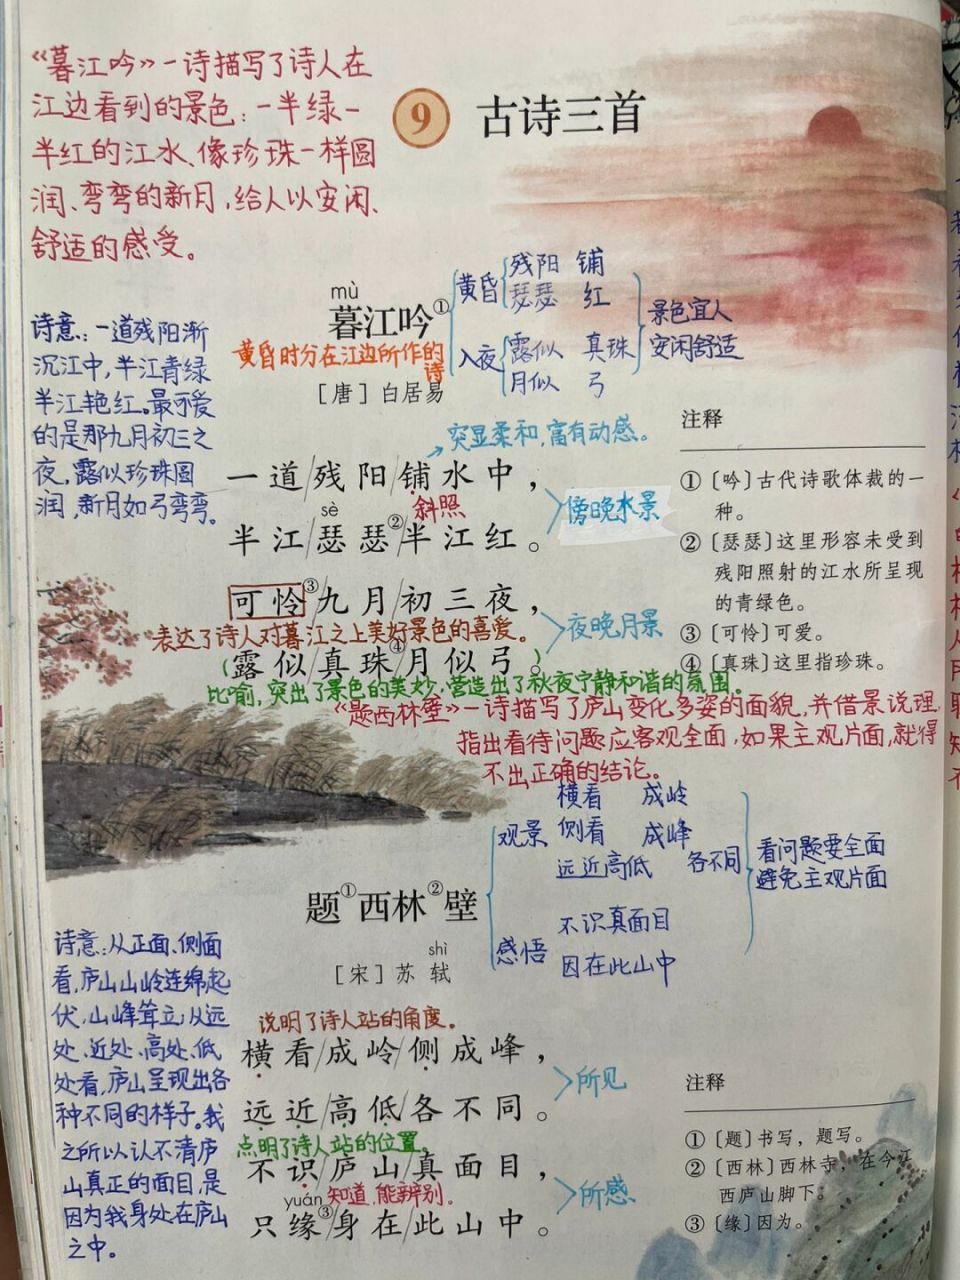 《暮江吟》一诗描写了诗人在
江边看到的景色：一半绿一
半红的江水、像珍珠一样圆
润、弯弯的新月，给人以安闲、
舒适的感受。
9 古诗三首
mù
暮江吟①
黄昏时分在江边所作的
诗
［唐］白居易
黄昏 残阳 铺
瑟瑟 红
入夜 露似 真珠
月似 弓
景色宜人
安闲舒适
诗意：一道残阳渐
沉江中，半江青绿
半江艳红。最可爱
的是那九月初三之
夜，露似珍珠圆
润，新月如弓弯弯。
突显柔和，富有动感。
一道/残阳/铺水中，
sè 斜照
半江/瑟瑟②/半江红。
傍晚水景
可怜③/九月/初三夜，
表达了诗人对暮江之上美好景色的喜爱。
(露似/真珠④/月似弓。)
夜晚月景
比喻，突出了景色的美妙，营造出了秋夜宁静和谐的氛围。
注释
①〔吟〕古代诗歌体裁的一
种。
②〔瑟瑟〕这里形容未受到
残阳照射的江水所呈现
的青绿色。
③〔可怜〕可爱。
④〔真珠〕这里指珍珠。
《题西林壁》一诗描写了庐山变化多姿的面貌，并借景说理，
指出看待问题应客观全面，如果主观片面，就得
不出正确的结论。
题①西林②壁
shì
［宋］苏 轼
观景 横看 成岭
侧看 成峰
远近高低 各不同
感悟 不识真面目
因在此山中
看问题要全面
避免主观片面
诗意：从正面、侧面
看，庐山山岭连绵起
伏，山峰耸立；从远
处、近处、高处、低
处看，庐山呈现出各
种不同的样子。我
之所以认不清庐
山真正的面目，是
因为我身处在庐山
之中。
说明了诗人站的角度。
横看/成岭/侧成峰，
远近/高低/各不同。
所见
点明了诗人站的位置。
不识/庐山/真面目，
yuán 知道，能辨别。
只缘③/身在/此山中。
所感
注释
①〔题〕书写，题写。
②〔西林〕西林寺，在今江
西庐山脚下。
③〔缘〕因为。